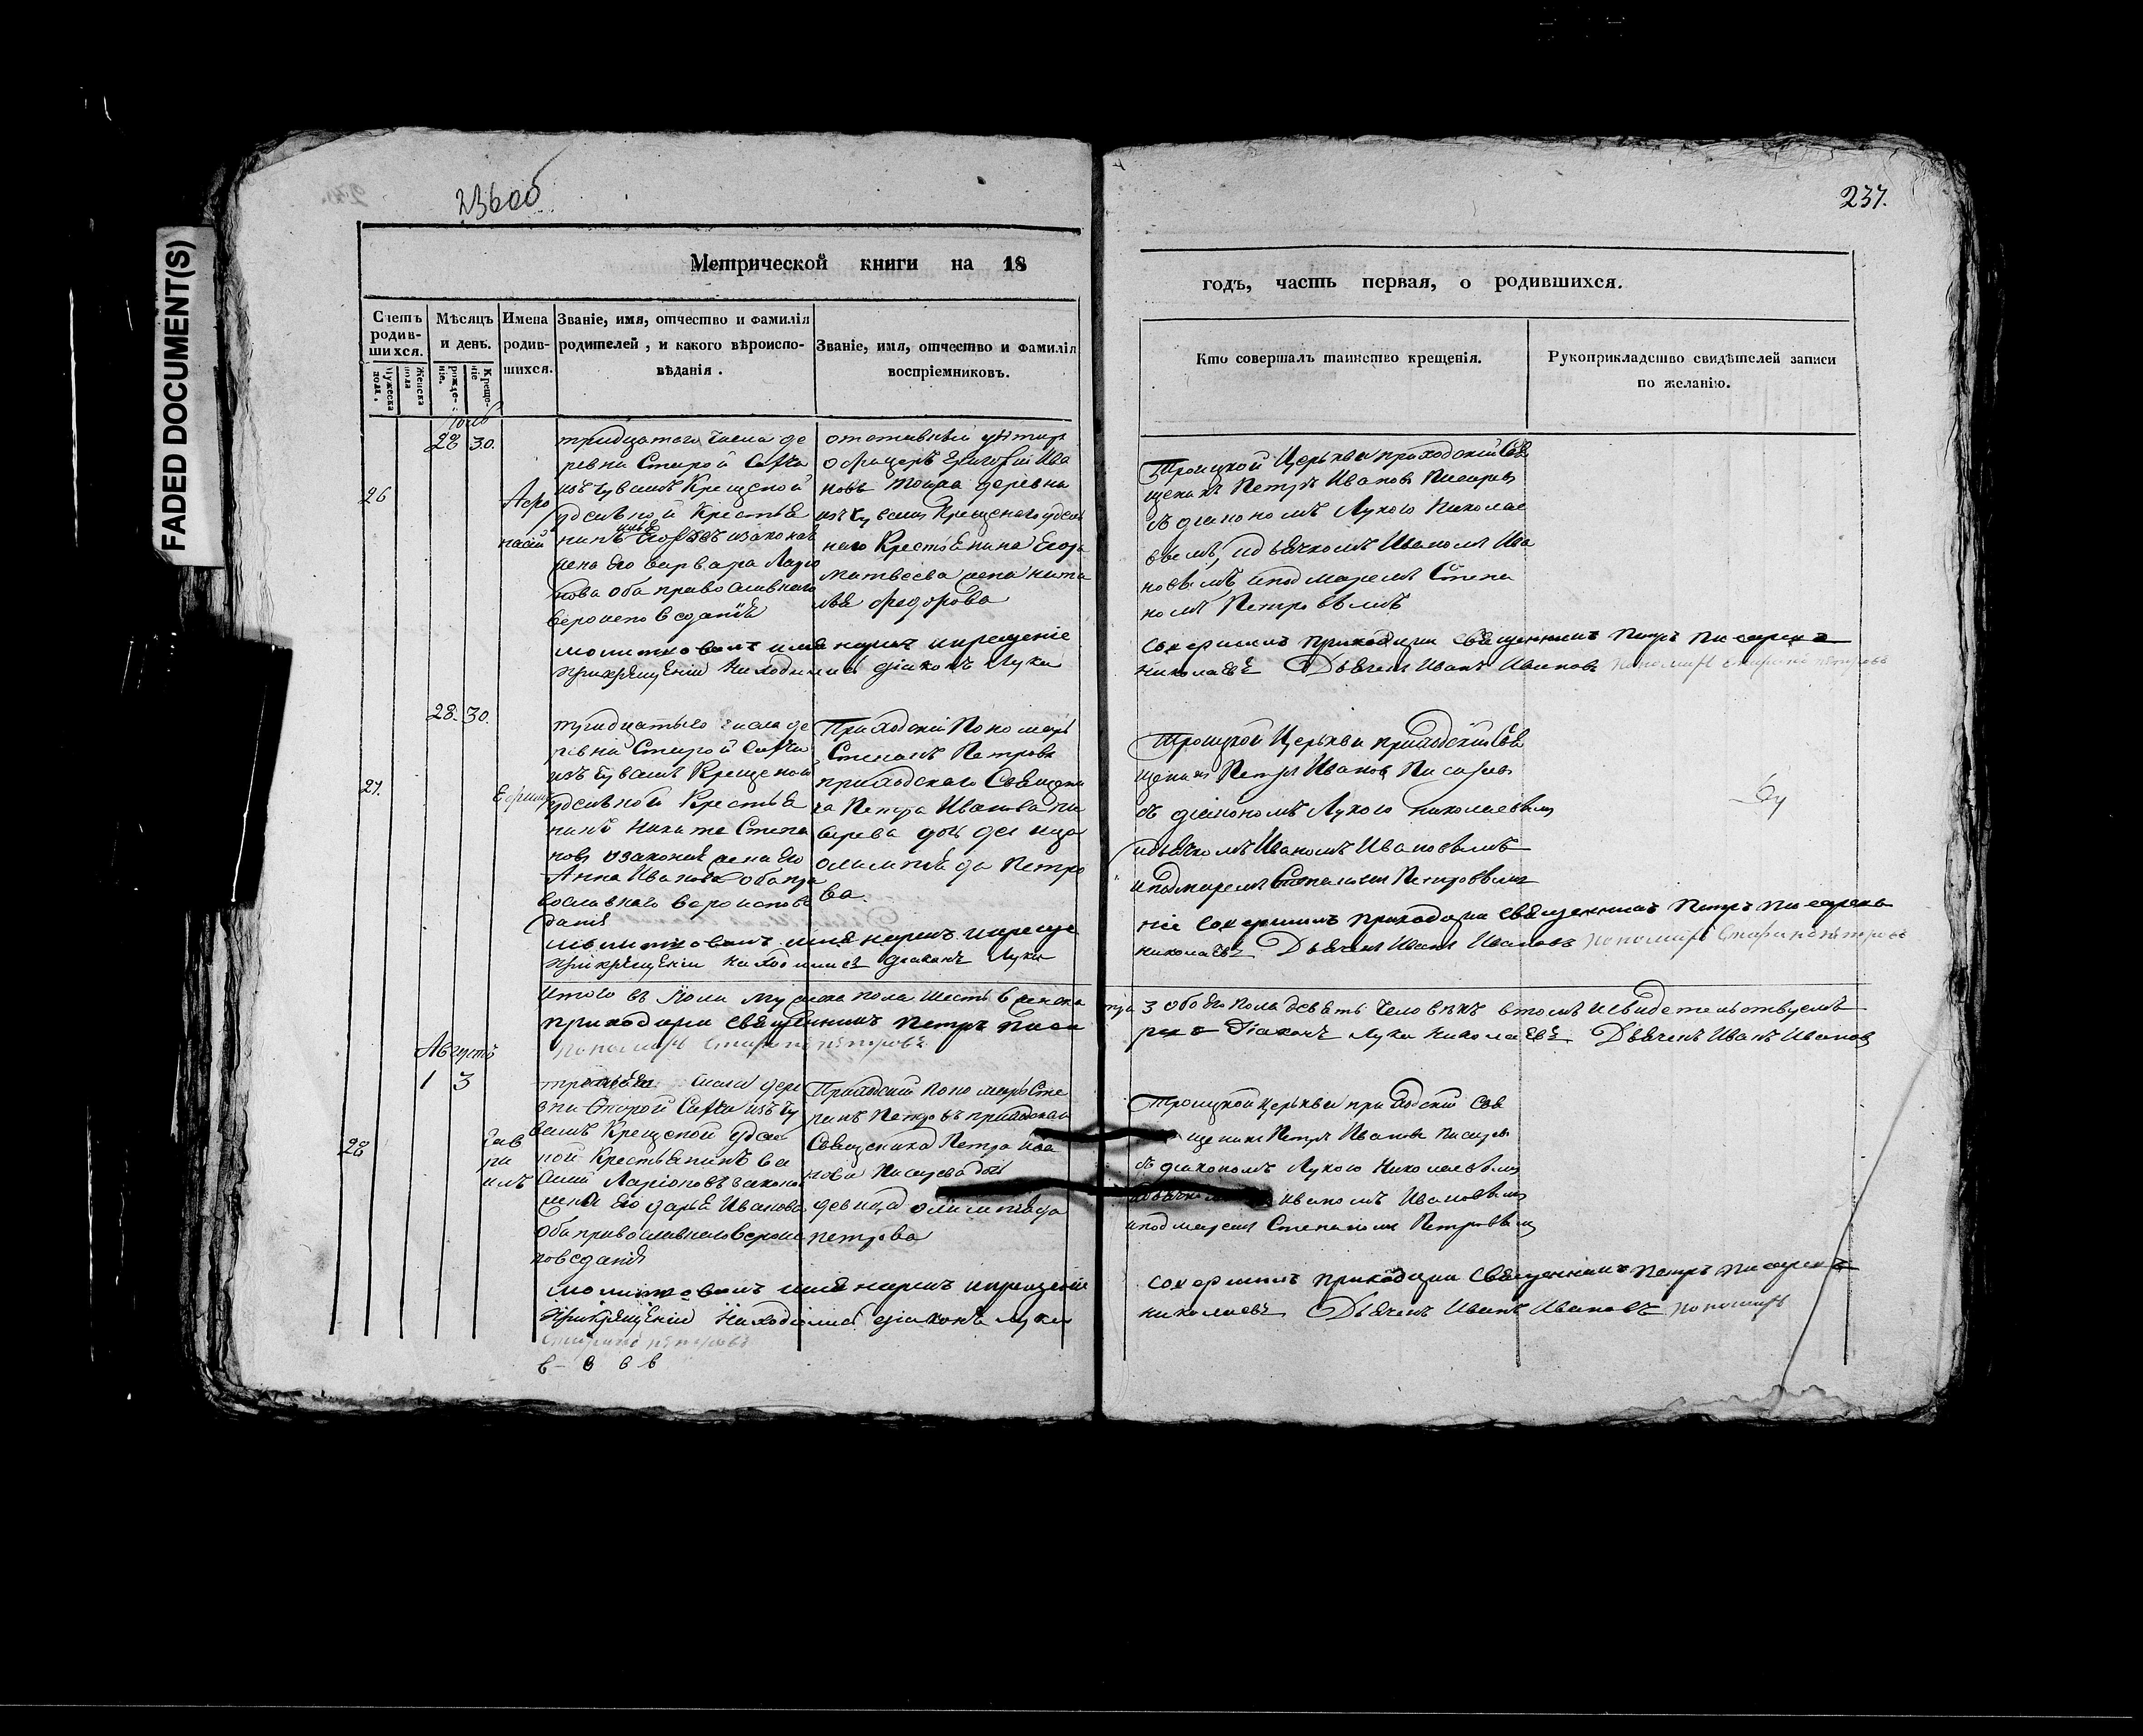 FADED DOCUMENT(S)
236об
237.
Метрической книги на 18
годъ, часть первая, о родившихся.
Счетъ родив-шихся.
Мужеска пола.
Женска пола
Мѣсяцъ и день.
рожде-нiе.
Креще-нiе
Имена родив-шихся.
Званiе, имя, отчество и фамилiя родителей, и какого вѣроиспо-вѣданiя.
Званiе, имя, отчество и фамилiя воспрiемниковъ.
Кто совершалъ таинство крещенiя.
Рукоприкладство свидѣтелей записи по желанiю.
28 30.
26
тридцатаго числа де
ревни Старой
изъ чувашъ Крещеной
удельной Крестья
нинъ изакон
жена его варвара Ларио
нова оба православнаго
вероисповеданiя
офицеръ Григорiй Ива
новъ тоижа деревни
изъ чувашъ Крещенаго удель
наго Крестьянина Егора
матвеева жена ната
лья федорова
Троицкой Церькви приходскiй Свя
щеникъ Петръ Ивановъ Писаревъ
съ дiакономъ Лукою Николае
вымъ, идьячкомъ Иваномъ Ива
новымъ ипономаремъ Степа
номъ Петровымъ
молитвовалъ имя нарекъ икрещенiе
совершилъ приходции священникъ Петръ Писаревъ
прикрещенiи находились дiаконъ Лука
николаевъ Дьячекъ Иванъ Ивановъ пономарь
28. 30.
27.
тридцатаго числа де
ревни Старой
изъ чувашъ Крещеной
удельной Крестья
нинъ Никита Степа
новъ изаконная жена его
Анна Иванова оба пра
вославнаго вероиспове
данiя
Приходскiй Пономарь
Степанъ Петровъ
приходскаго Священи
ка Петра Иванова пи
сарева дочь девица
олимпiада Петро
ва.
Троицкой Церькви приходскiй Свя
щеникъ Петръ Ивановъ Писаревъ
съ дiакономъ Лукою николаевымъ
идьячкомъ Иваномъ Ивановымъ
ипономаремъ Степаномъ Петровымъ
молитвовалъ имя нарекъ икреще
нiе совершилъ приходции священникъ Петръ Писаревъ
прикрещенiи находились дiаконъ Лука
николаевъ Дьячекъ Иванъ Ивановъ пономарь
Итого въ Iюли мужеска пола шесть 6 женска
3 обоего пола девять человекъ втомъ исвидетельствуемъ
приходции священникъ Петръ Писа
ревъ Дiаконъ Лука николаевъ Дьячекъ Иванъ Ивановъ
пономарь
Августъ
1 3
28
Гав
рi
илъ
третьяго числа дере
вни Старой изъ чу
вашъ Крещеной удель
ной Крестьянинъ ва
силiй Ларiоновъ изаконая
жена его дарья Иванова
оба православнаго вероис
поведанiя
Приходскiй пономарь Сте
панъ Петровъ приходскаго
Священика Петра Ива
нова Писарева дочь
девица олимпiада
петрова
Троицкой церькви приходскiй Свя
щеникъ Петръ Ивановъ Писаревъ
съ дiакономъ Лукою Николаевымъ
идьячкомъ Иваномъ Ивановымъ
ипономаремъ Степаномъ Петровымъ
молитвовалъ имя нарекъ икрещенiе
совершилъ приходции священникъ Петръ Писаревъ
прикрещенiи находились дiаконъ Лука
николаевъ Дьячекъ Иванъ Ивановъ пономарь